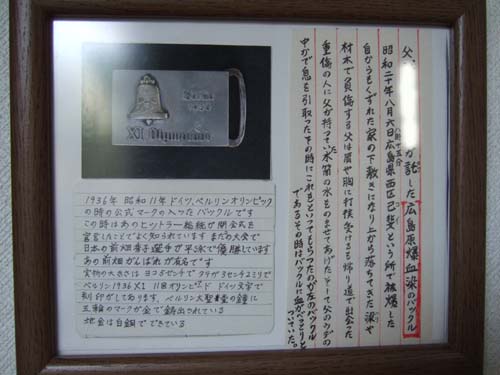 父、
が記した広島原爆血染のバックル
昭和二十年八月六日広島県西区己斐という所で被爆した
八時十五分
自からもくずれた家の下敷きになり上から落ちてきた梁や
材木で負傷する父は肩や胸に打撲受けるも帰り道で出会った
重傷の人に父が持っていた水筒の水をのませてあげたそして父のウデの
中かで息を引取ったその時にこれをといってもらったのが左のバックル
であるその時はバックルに血がべっとりと
ついていた。
Berlin
1936
XI Olympiade
1936年 昭和11年ドイツ、ベルリンオリンピック
の時の公式マークの入ったバックルです
この時はあのヒットラー総統が開会式を
宣言したことでよく知られています またこの大会で
日本の前畑秀子選手が平泳で優勝しています
あの前畑がんばれが有名です
実物の大きさはヨコ5センチ タテが3センチ2ミリで
ベルリン1936 XI 11回オリンピアード ドイツ文字で
刻印がしてあります、ベルリン大聖堂の鐘に
五輪のマークが金で鋳出されている
地金は白銅でできている